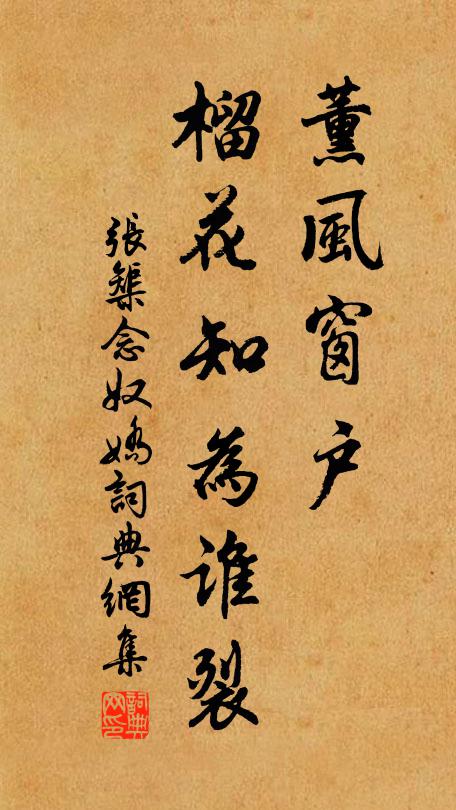 薰風窗户
榴花知為誰裂
張榘念奴嬌詞典網集
詞典
网印